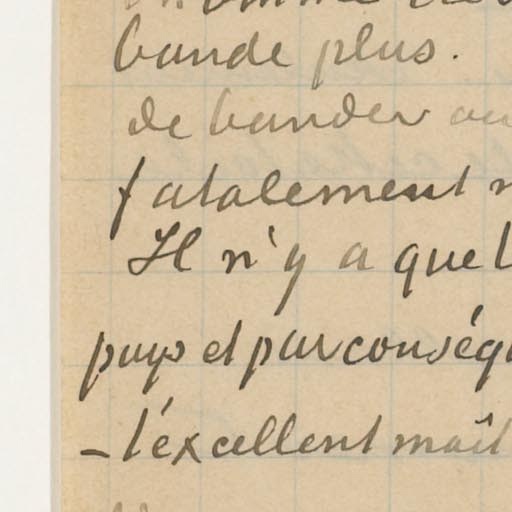 bande plus.
de bander au
fatalement
Il n'y a que l
pays et par conséq
– l'excellent maît